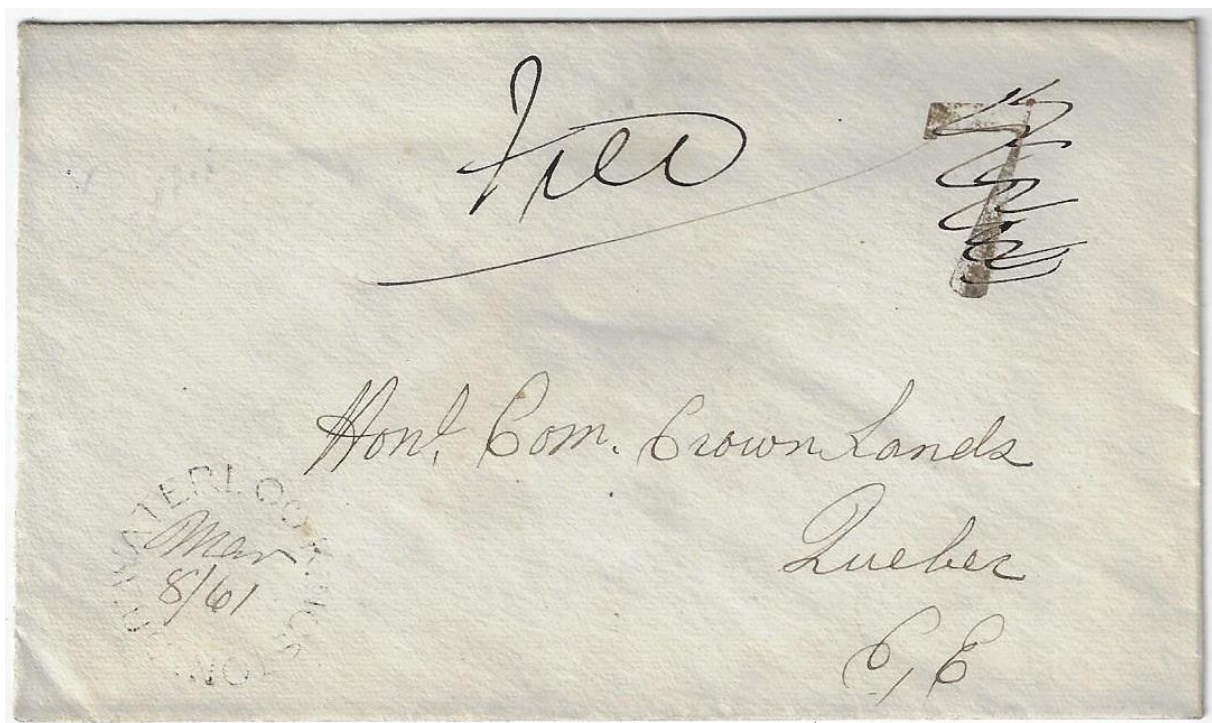 Free
7
Honl. Com. Crown Lands
Quebec
C, E
WATERLOO
Mar
8/61